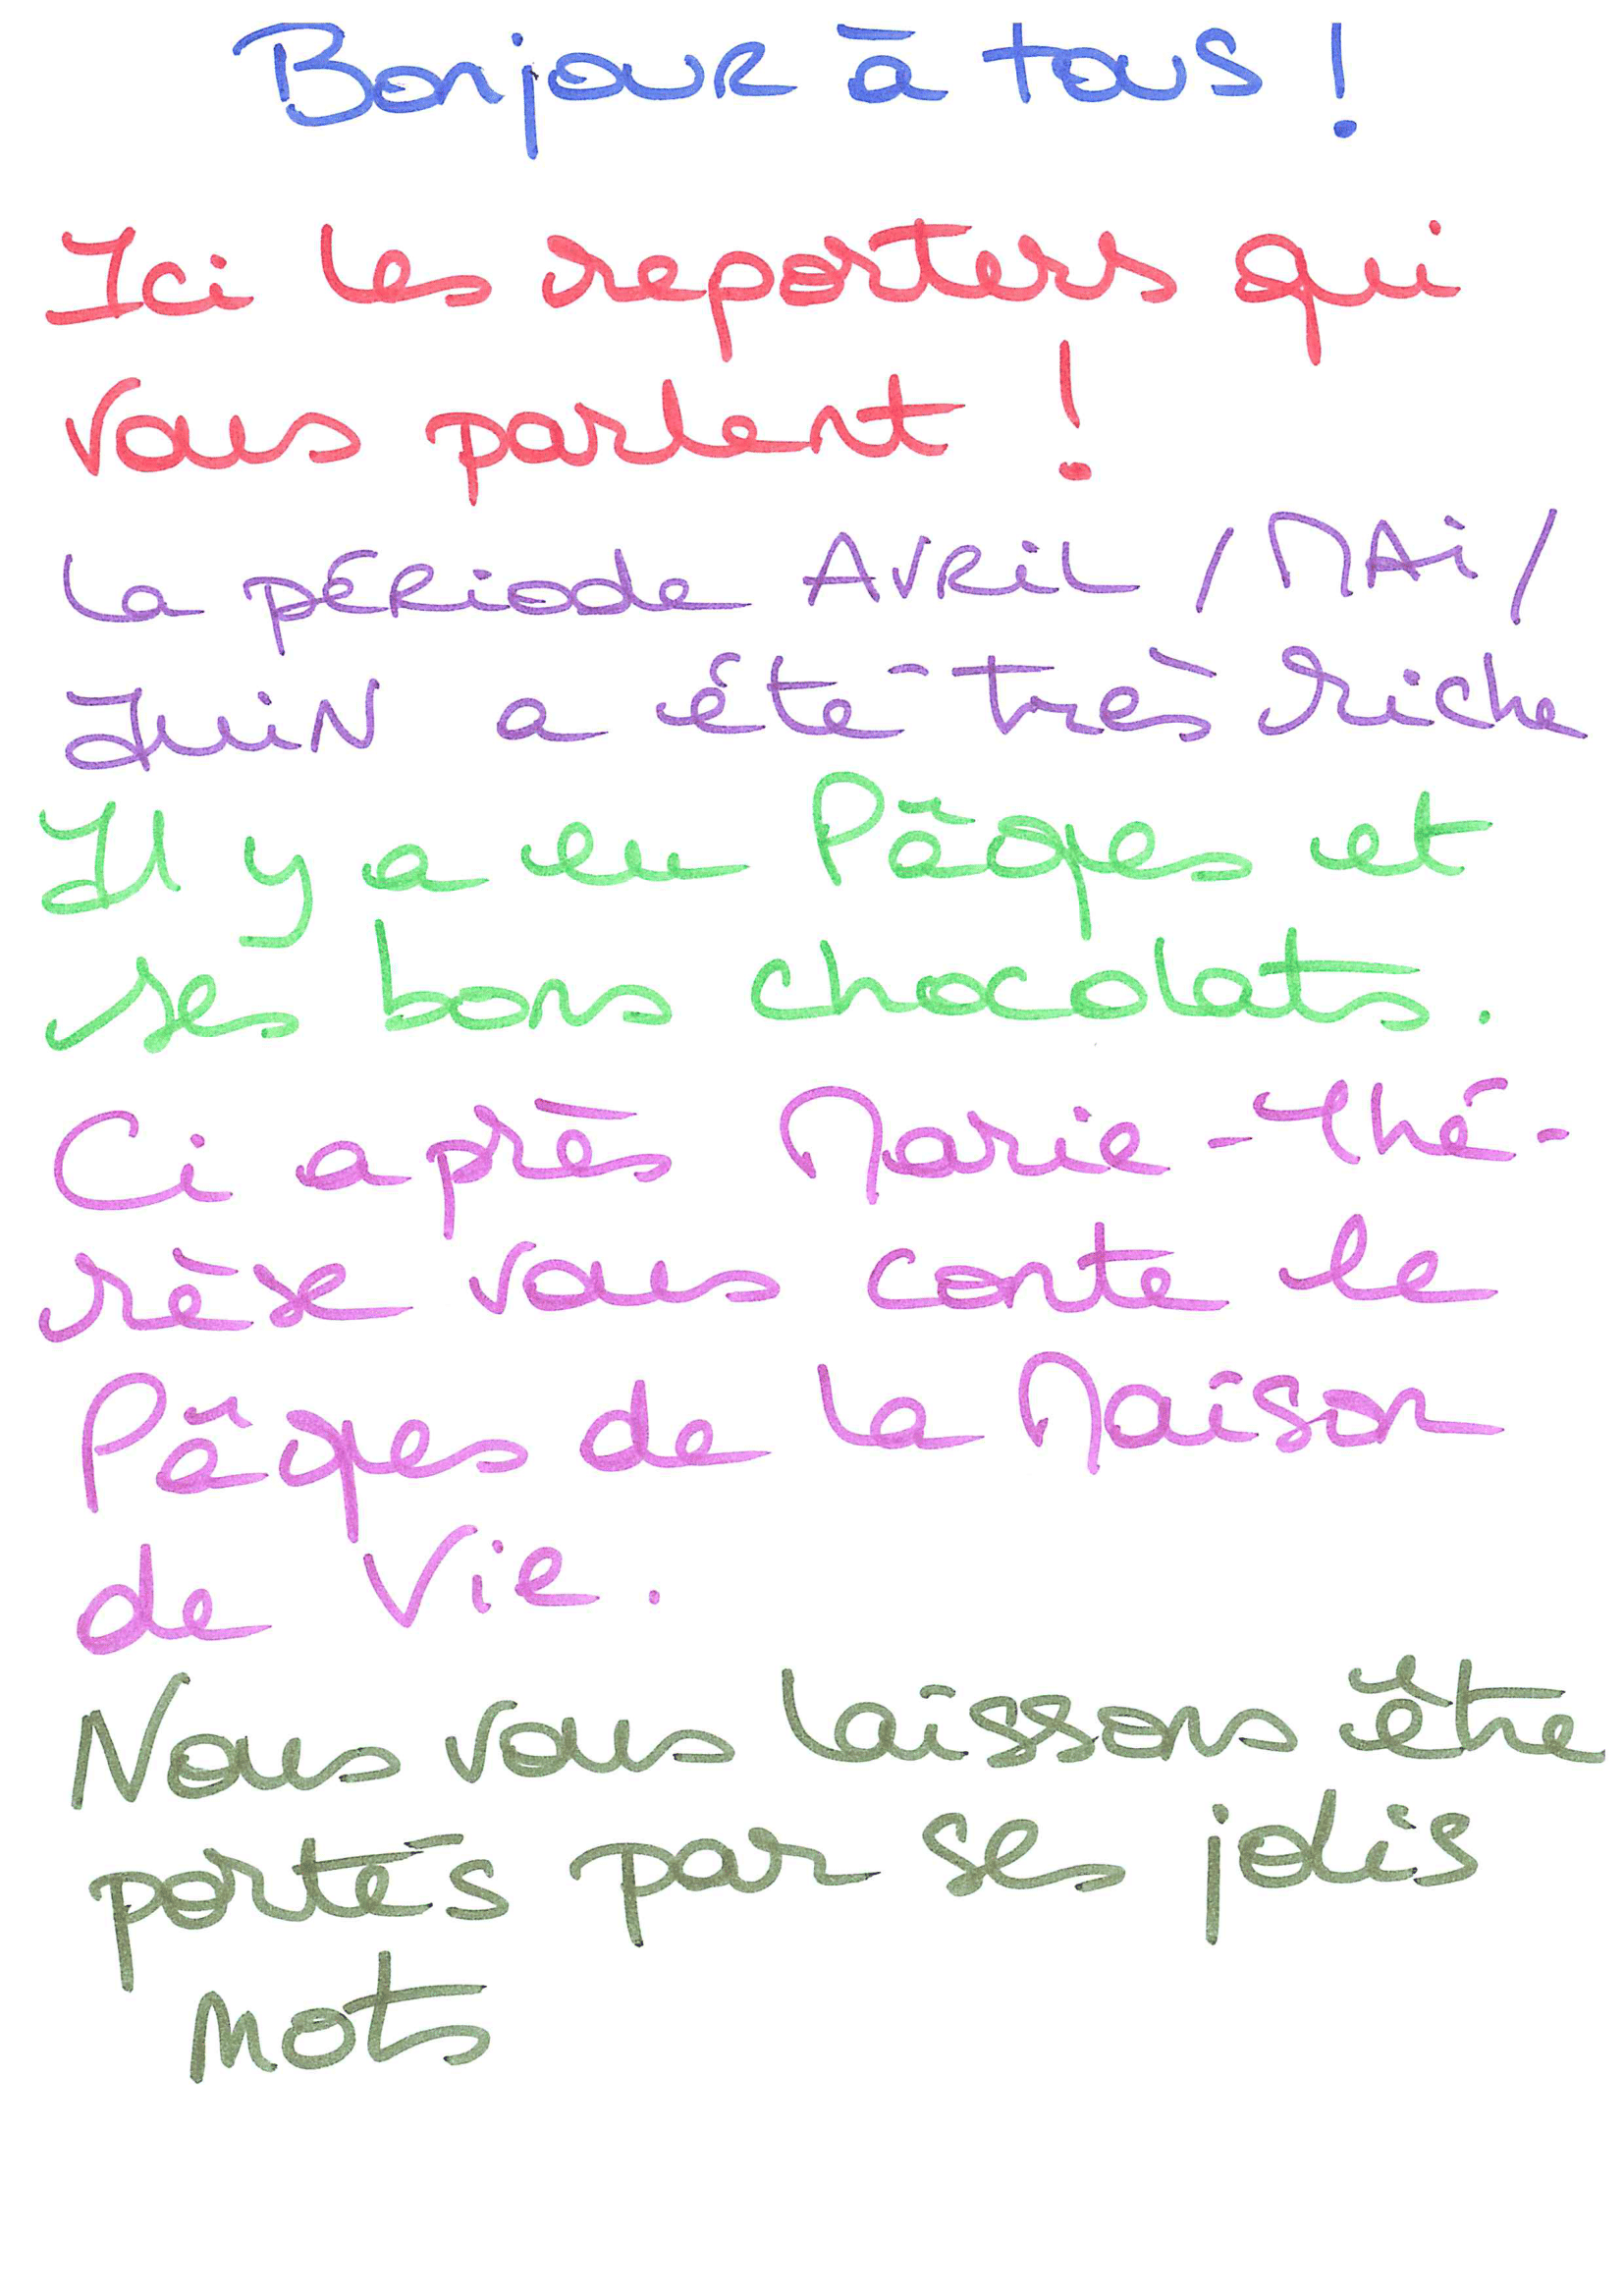 Bonjour à tous !
Ici les reporters qui
vous parlent !
La période AVRIL / MAI /
JUIN a été très riche
Il y a eu Pâques et
ses bons chocolats.
Ci après Marie-Thé-
rèse vous conte le
Pâques de la Maison
de Vie.
Nous vous laissons être
portés par ses jolis
mots